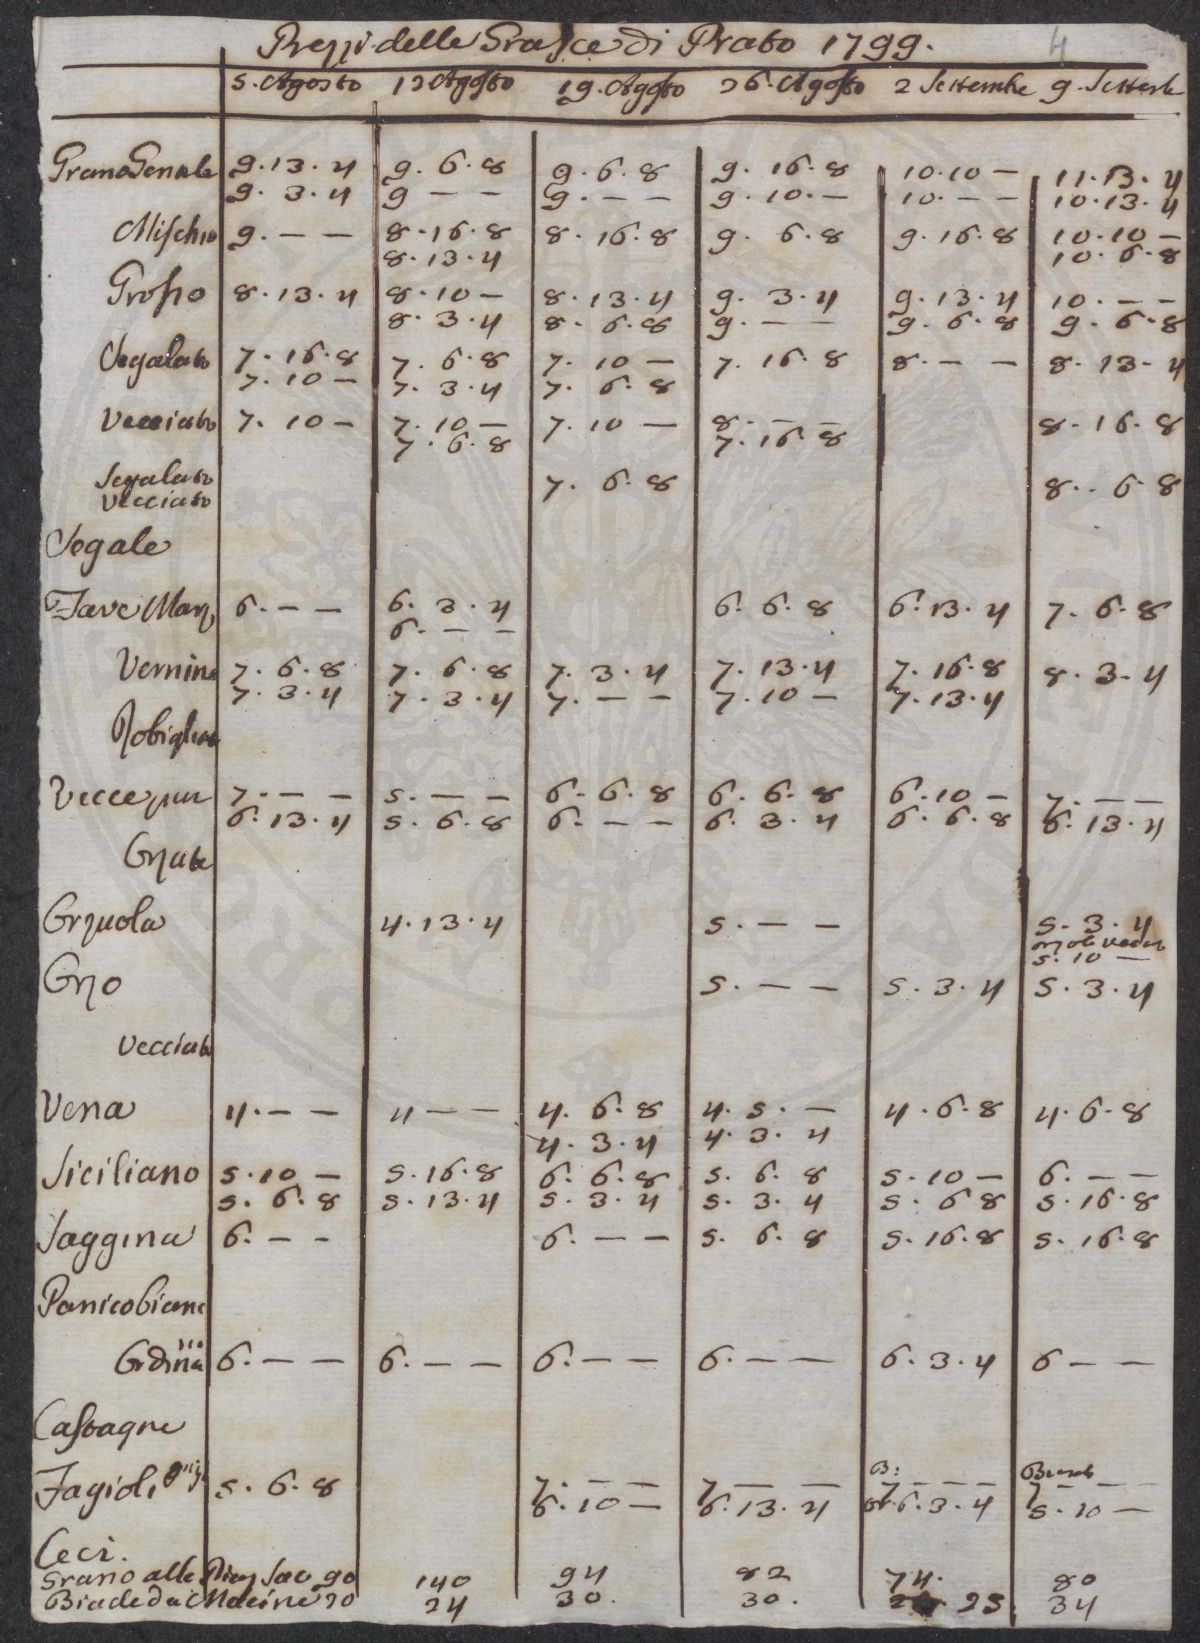 Prezzi delle Grasce di Prato 1799. 4
5. Agosto 12 Agosto 19. Agosto 26. Agosto 2 Settembre 9. Settembre
Grano Genale 9.13.4 9. 6.8 9.6.8 9. 16.8 10.10 — 11.13.4
9.3.4 9 — — 9. — — 9.10. — 10. — — 10.13.4
Mischio 9. — — 8.16.8 8.16.8 9. 6.8 9.16.8 10.10 —
8.13.4 10.6.8
Grosso 8.13.4 8.10 — 8.13.4 9. 3.4 9.13.4 10. — —
8.3.4 8.6.8 9. — — 9.6.8 9.6.8
Segalato 7.16.8 7.6.8 7.10 — 7.16.8 8. — — 8.13.4
7.10 — 7.3.4 7.6.8
Vecciato 7.10 — 7.10 — 7.10 — 8. — — 8.16.8
7.6.8 7.16.8
Segalato 7.6.8 8..6.8
Vecciato
Segale
Fave Marz 6. — — 6.3.4 6.6.8 6.13.4 7.6.8
6. — —
Vernine 7.6.8 7.6.8 7.3.4 7.13.4 7.16.8 8.3.4
7.3.4 7.3.4 7. — — 7.10 — 7.13.4
Robiglie
Vecce pur 7. — — 5. — — 6.6.8 6.6.8 6.10 — 7. — —
6.13.4 5.6.8 6. — — 6.3.4 6.6.8 6.13.4
Orzate
Orzuola 4.13.4 5. — — 5.3.4
5.10 —
Orzo 5. — — 5.3.4 5.3.4
Vecciato
Vena 4. — — 4 — — 4.6.8 4.5. — 4.6.8 4.6.8
4.3.4 4.3.4
Siciliano 5.10 — 5.16.8 6.6.8 5.6.8 5.10 — 6. — —
5.6.8 5.13.4 5.3.4 5.3.4 5.6 8 5.16.8
Saggina 6. — — 6. — — 5.6.8 5.16.8 5.16.8
Panico bianc
Ordina 6. — — 6. — — 6. — — 6. — — 6.3.4 6 — —
Castagne
B:
Fagioli 5.6.8 7. — — 7 — — 7 — — 7 — —
6.10 — 6.13.4 6.3.4 5.10 —
Ceci.
Grano alla Piaz Sac 90 140 94 82 74. 80
Biade da Macine 20 24 30. 30. 25 34